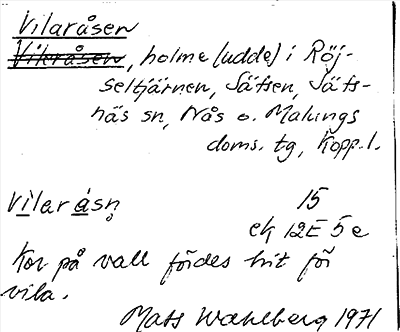 Vilaråsen
Vikråsen, holme (udde) i Röj-
seltjärnen, Säfsen, Säfs-
näs sn, Nås o. Malungs
doms. tg, Kopp. l.
Vilaråsn̥ 15
ek 12E 5e
Kor på vall fördes hit för
vila.
Mats Wahlberg 1971